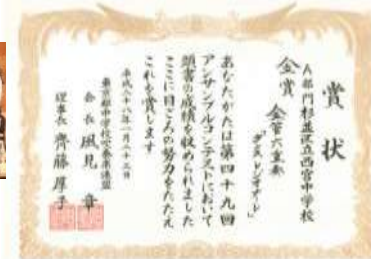 賞状
A部門 杉並区立西宮中学校
金賞 金管六重奏
あなたがたは第四十九回
アンサンブルコンテストにおいて
頭書の成績を収められました
ここに日ごろの努力をたたえ
これを賞します
東京都中学校吹奏楽連盟
会長 風見 章
理事長 齊藤 厚子